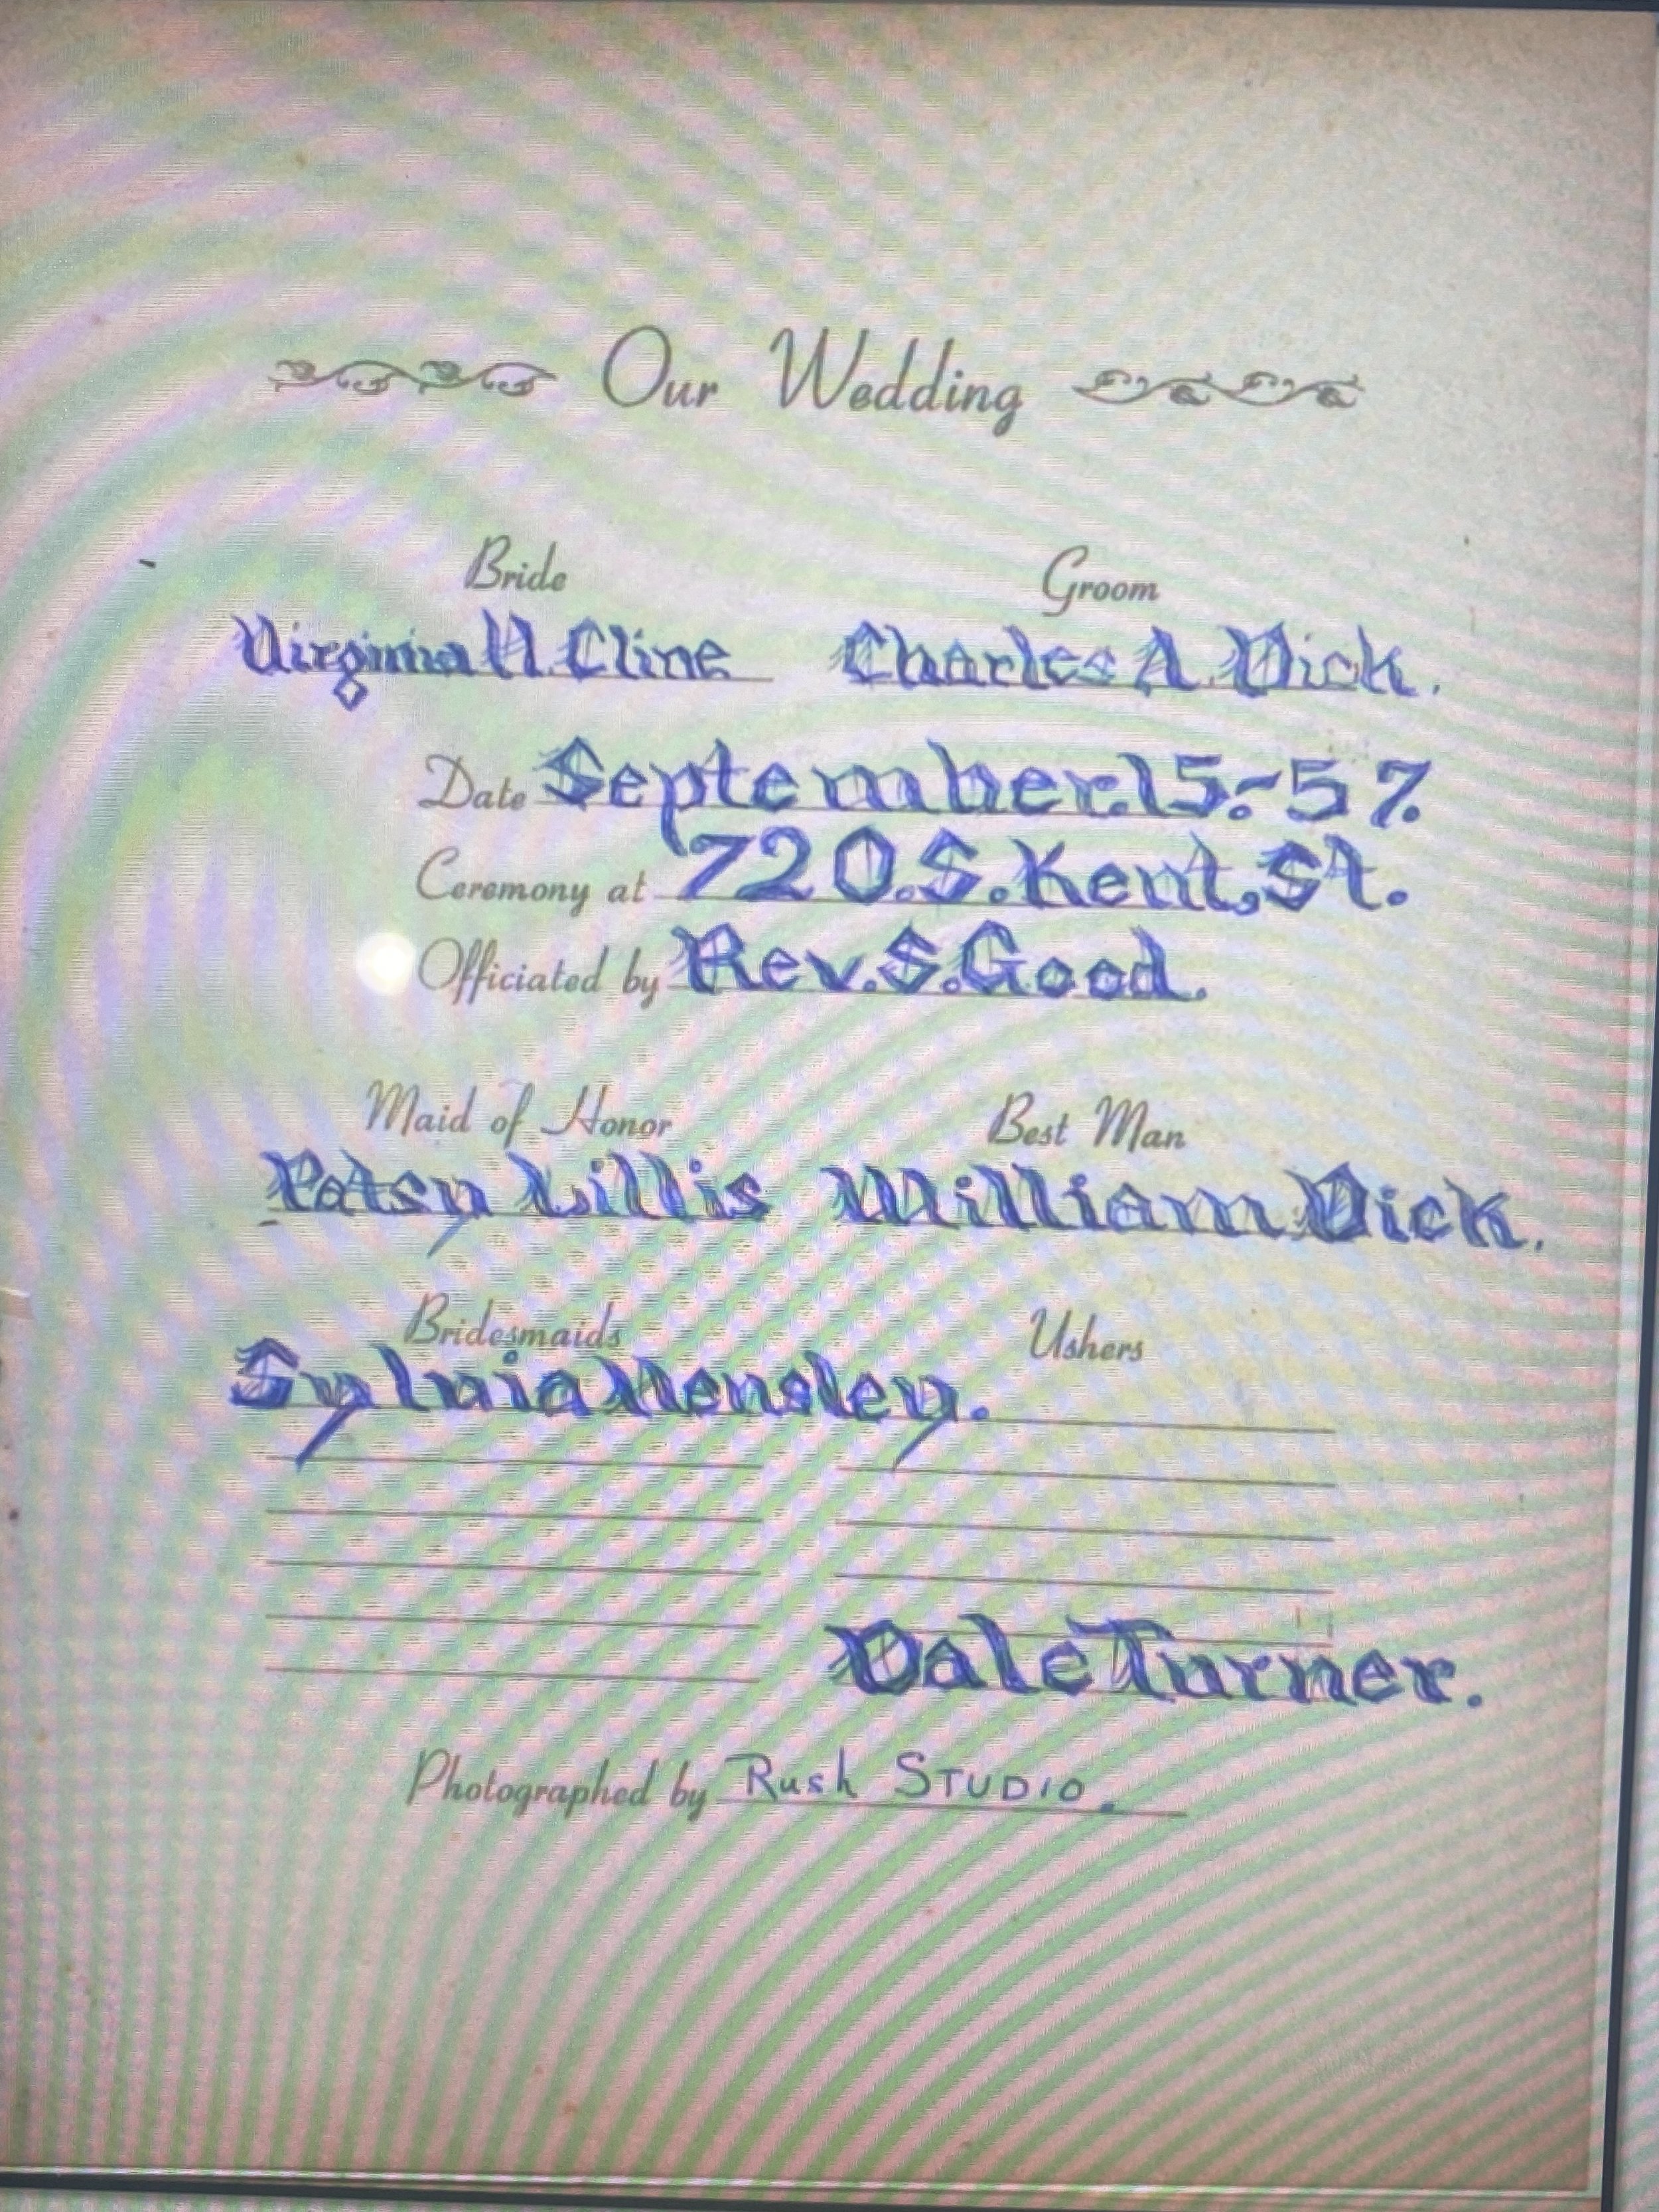 Our Wedding
Bride Groom
Virginia H. Cline Charles A. Dick.
Date September.15.-57.
Ceremony at 720.S.Kent,St.
Officiated by Rev.S.Good.
Maid of Honor Best Man
Patsy Lillis William Dick.
Bridesmaids Ushers
Sylvia Hensley.
Dale Turner.
Photographed by Rush STUDIO.